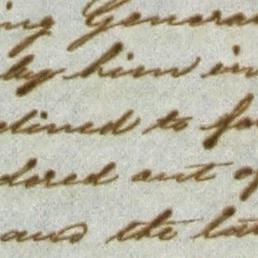 ing Genera
by him in
clined to fa
dered out of
and the lat